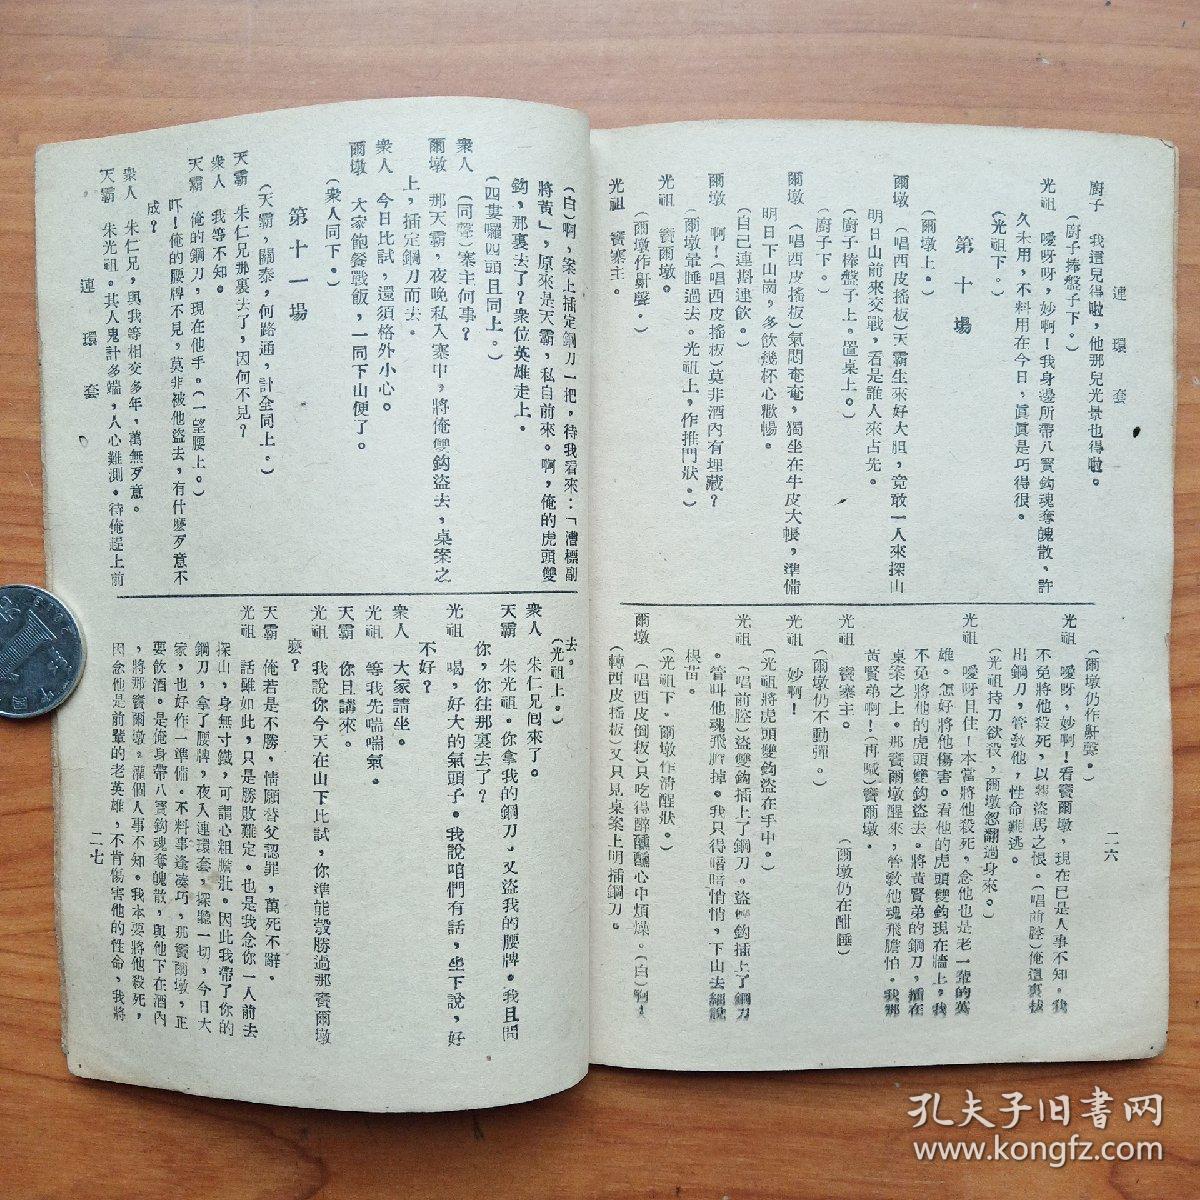 連環套
二六
廚子　我這兒得啦，他那兒光景也得啦。
（廚子捧盤子下。）
光祖　噯呀呀，妙啊！我身邊所帶八寶鈎魂奪魄散、許
久未用，不料用在今日，眞眞是巧得很。
（光祖下。）
第十場
（爾墩上。）
爾墩　（唱西皮搖板）天霸生來好大胆，竟敢一人來探山
明日山前來交戰，看是誰人來占先。
（廚子棒盤子上。置桌上。）
（廚子下。）
爾墩　（唱西皮搖板）氣悶奄奄，獨坐在牛皮大帳，準備
明日下山崗，多飲幾杯心歡暢。
（自己連斟連飲。）
爾墩　啊！（唱西皮搖板）莫非酒內有埋藏？
（爾墩暈睡過去。光祖上，作推門狀。）
光祖　竇爾墩。
（爾墩作鼾聲。）
光祖　竇寨主。
（爾墩仍作鼾聲。）
光祖　噯呀，妙啊！看竇爾墩，現在已是人事不知，我
不免將他殺死，以報盜馬之恨。（唱前腔）俺這裏拔
出鋼刀，管敎他，性命難逃。
（光祖持刀欲殺，爾墩忽翻過身來。）
光祖　噯呀且住！本當將他殺死，念他也是老一輩的英
雄。怎好將他傷害。看他的虎頭雙鈎現在牆上，我
不免將他的虎頭雙鈎盜去。將黃賢弟的鋼刀，插在
桌案之上。那竇爾墩醒來，管敎他魂飛膽怕。我那
黃賢弟啊！（再喊）竇爾墩。
光祖　竇寨主。　（爾墩仍在酣睡）
（爾墩仍不動彈。）
光祖　妙啊！
（光祖將虎頭雙鈎盜在手中。）
光祖　（唱前腔）盜雙鈎插上了鋼刀。盜雙鈎插上了鋼刀
。管叫他魂飛胆掉。我只得暗暗悄悄，下山去細說
根苗。
（光祖下。爾墩作清醒狀。）
爾墩　（唱西皮倒板）只吃得醉醺醺心中煩燥。（白）啊！
（轉西皮搖板）又只見桌案上明插鋼刀。
（白）啊，案上插定鋼刀一把，待我看來：「漕標副
將黃」，原來是天霸，私自前來。啊，俺的虎頭雙
鈎，那裏去了？衆位英雄走上。
（四嘍囉四頭且同上。）
衆人　（同聲）寨主何事？
爾墩　那天霸，夜晚私入寨中，將俺雙鈎盜去，桌案之
上，插定鋼刀而去。
衆人　今日比試，還須格外小心。
爾墩　大家飽餐戰飯，一同下山便了。
（衆人同下。）
第十一場
（天霸，關泰，何路通，計全同上。）
天霸　朱仁兄那裏去了，因何不見？
衆人　我等不知。
天霸　俺的鋼刀，現在他手。（一望腰上。）
吓！俺的腰牌不見，莫非被他盜去，有什麽歹意不
成？
衆人　朱仁兄，與我等相交多年，萬無歹意。
天霸　朱光祖。其人鬼計多端，人心難測。待俺趕上前
去。
（光祖上。）
衆人　朱仁兄囘來了。
天霸　朱光祖。你拿我的鋼刀。又盜我的腰牌。我且問
你，你往那裏去了？
光祖　喝，好大的氣頭子。我說咱們有話，坐下說，好
不好？
衆人　大家請坐。
光祖　等我先喘喘氣。
天霸　你且講來。
光祖　我說你今天在山下比試，你準能彀勝過那竇爾墩
麽？
天霸　俺若是不勝，情願替父認罪，萬死不辭。
光祖　話雖如此，只是勝敗難定。也是我念你一人前去
探山，身無寸鐵，可謂心粗膽壯。因此我帶了你的
鋼刀，拿了腰牌，夜入連環套，探聽一切，今日大
家，也好作一準備。不料事逢湊巧，那竇爾墩，正
要飲酒。是俺身帶八寶鈎魂奪魄散，與他下在酒內
，將那竇爾墩。灌個人事不知。我本要將他殺死，
因念他是前輩的老英雄，不肯傷害他的性命，我將
連環套
二七
孔夫子旧書网
www.kongfz.com